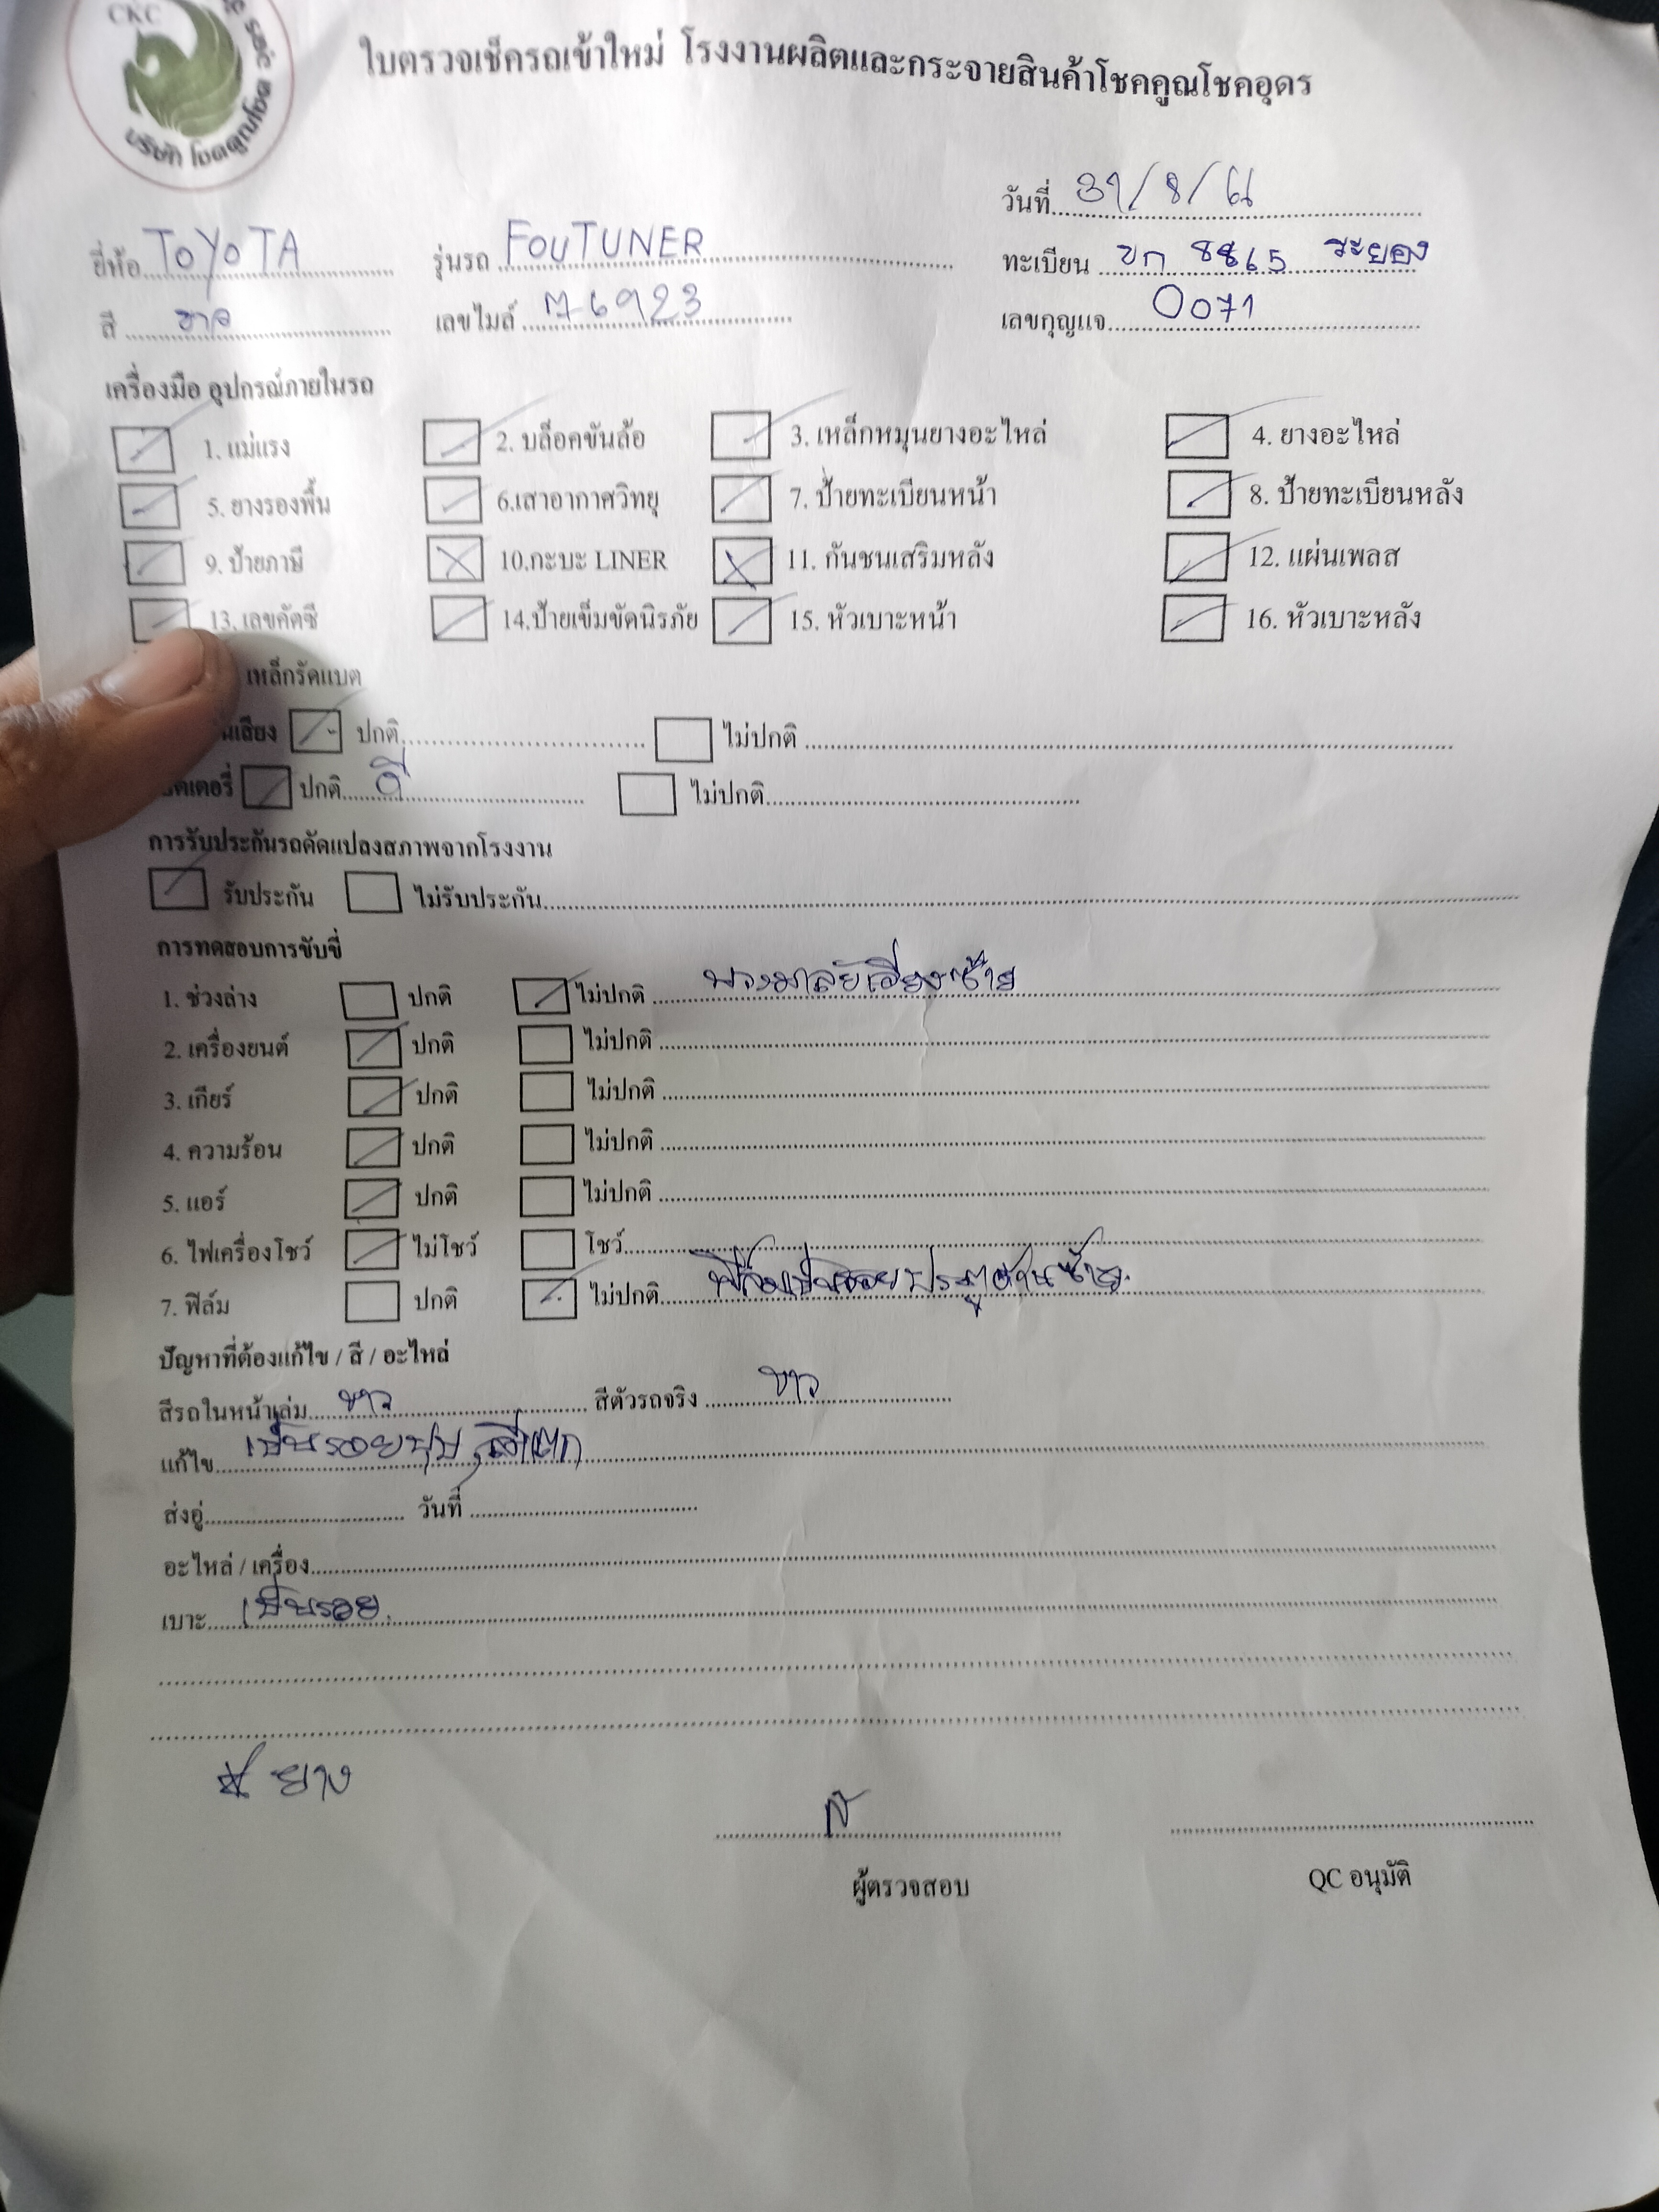 CKC
บริษัท โชคคูณโชค
ใบตรวจเช็ครถเข้าใหม่ โรงงานผลิตและกระจายสินค้าโชคคูณโชคอุดร
วันที่ 31/8/61
ยี่ห้อ TOYOTA รุ่นรถ FOUTUNER ทะเบียน ขก 8865 ระยอง
สี ขาว เลขไมล์ 76923 เลขกุญแจ 0071
เครื่องมือ อุปกรณ์ภายในรถ
1. แม่แรง 2. บล็อคขันล้อ 3. เหล็กหมุนยางอะไหล่ 4. ยางอะไหล่
5. ยางรองพื้น 6.เสาอากาศวิทยุ 7. ป้ายทะเบียนหน้า 8. ป้ายทะเบียนหลัง
9. ป้ายภาษี 10.กะบะ LINER 11. กันชนเสริมหลัง 12. แผ่นเพลส
13. เลขคัตซี 14.ป้ายเข็มขัดนิรภัย 15. หัวเบาะหน้า 16. หัวเบาะหลัง
เหล็กรัดแบต
เสียง ปกติ ไม่ปกติ
ตเตอรี่ ปกติ ดี ไม่ปกติ
การรับประกันรถดัดแปลงสภาพจากโรงงาน
รับประกัน ไม่รับประกัน
การทดสอบการขับขี่
1. ช่วงล่าง ปกติ ไม่ปกติ พวงมาลัยเอียงซ้าย
2. เครื่องยนต์ ปกติ ไม่ปกติ
3. เกียร์ ปกติ ไม่ปกติ
4. ความร้อน ปกติ ไม่ปกติ
5. แอร์ ปกติ ไม่ปกติ
6. ไฟเครื่องโชว์ ไม่โชว์ โชว์
7. ฟิล์ม ปกติ ไม่ปกติ ฟิล์มเป็นรอยประตูด้านซ้าย
ปัญหาที่ต้องแก้ไข / สี / อะไหล่
สีรถในหน้าเล่ม ขาว สีตัวรถจริง ขาว
แก้ไข เป็นรอยบุบ,สีแตก
ส่งอู่ วันที่
อะไหล่ / เครื่อง
เบาะ เป็นรอย
* ยาง
ผู้ตรวจสอบ QC อนุมัติ